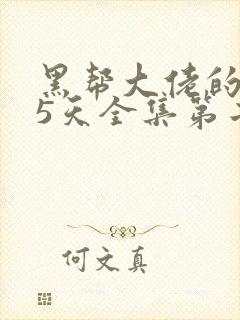 黑帮大佬的
5天全集第
何文真